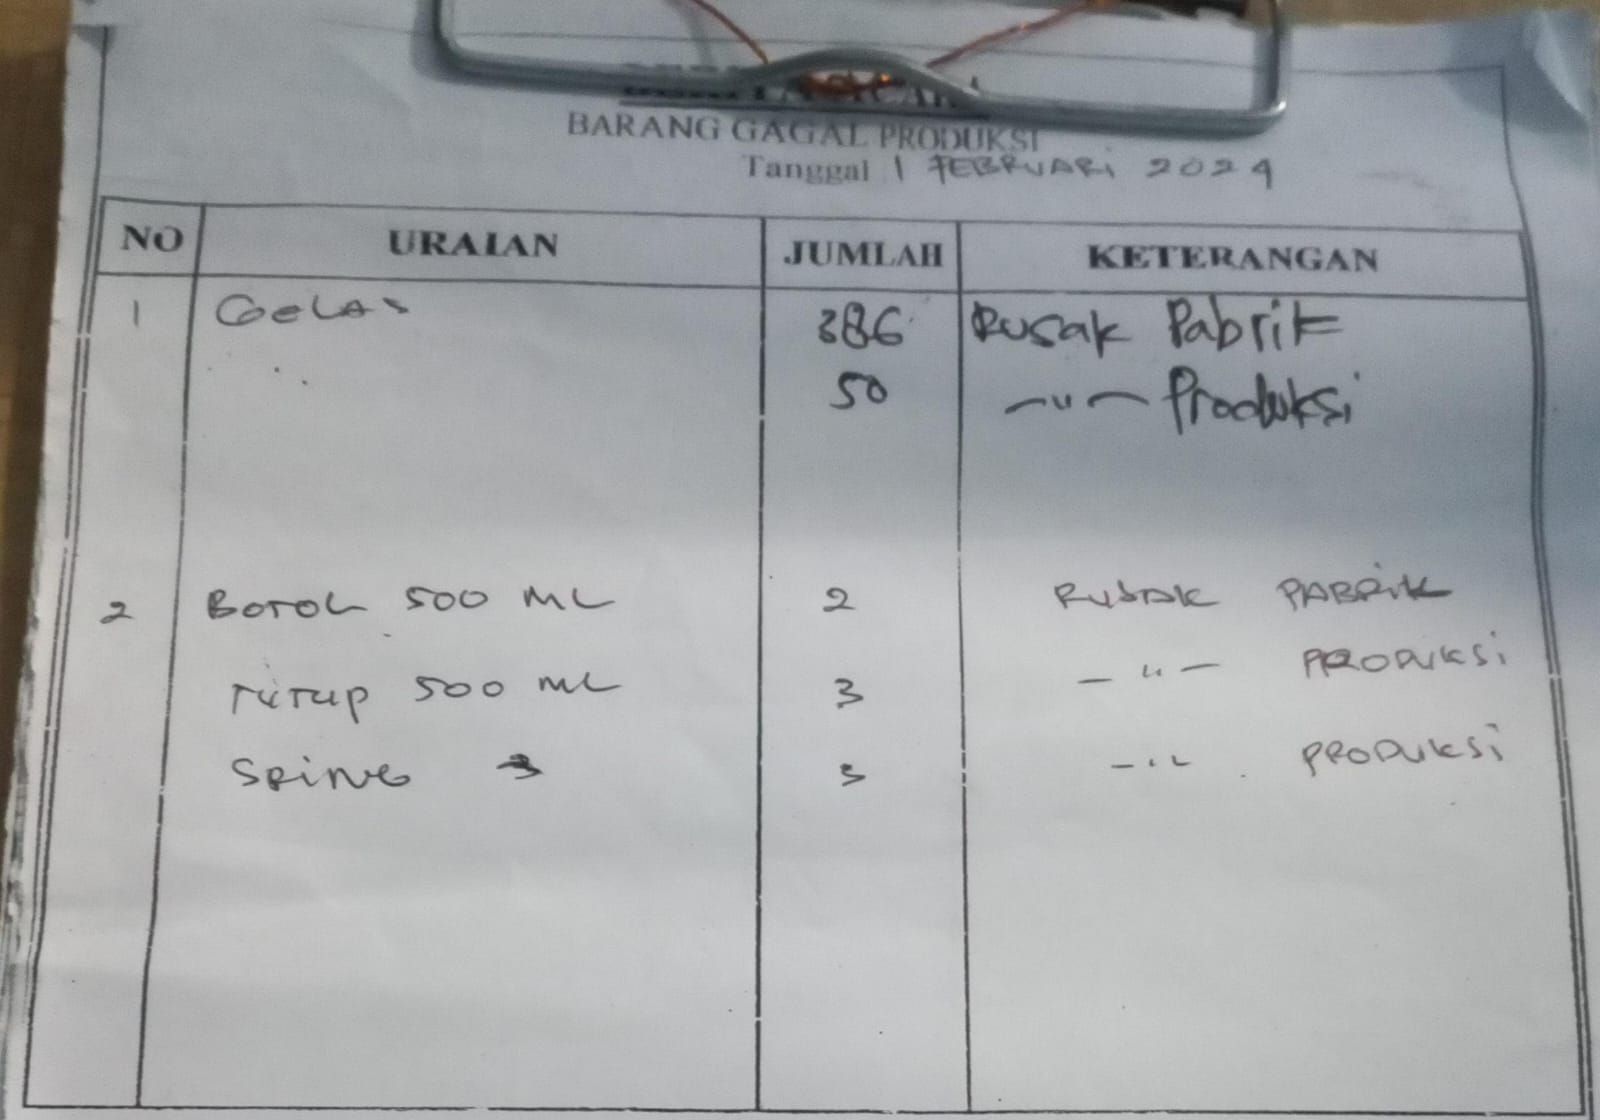 BARANG GAGAL PRODUKSI
Tanggal 1 FEBRUARI 2024
NO URAIAN JUMLAH KETERANGAN
1 GELAS 386 Rusak Pabrik
50 —"— Produksi
2 BOTOL 500 ML 2 RUSAK PABRIK
—"— PRODUKSI
TUTUP 500 ML 3
3 —"— PRODUKSI